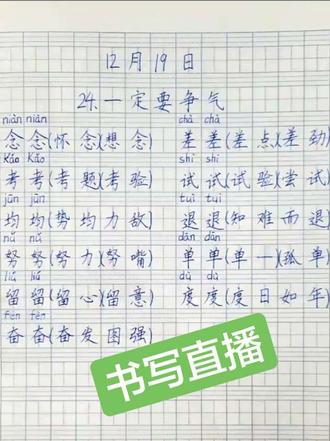 12月19日
24.一定要争气
niàn niàn chà chà
念念(怀念)(想念) 差差(差点)(差劲)
Kǎo Kǎo shì shì
考考(考题)(考验) 试试(试验)(尝试)
jūn jūn tuì tuì
均均(势均力敌) 退退(知难而退)
nǔ nǔ dān dān
努努(努力)(努嘴) 单单(单一)(孤单)
liú liú dù dù
留留(留心)(留意) 度度(度日如年)
fèn fèn
奋奋(奋发图强)
书写直播